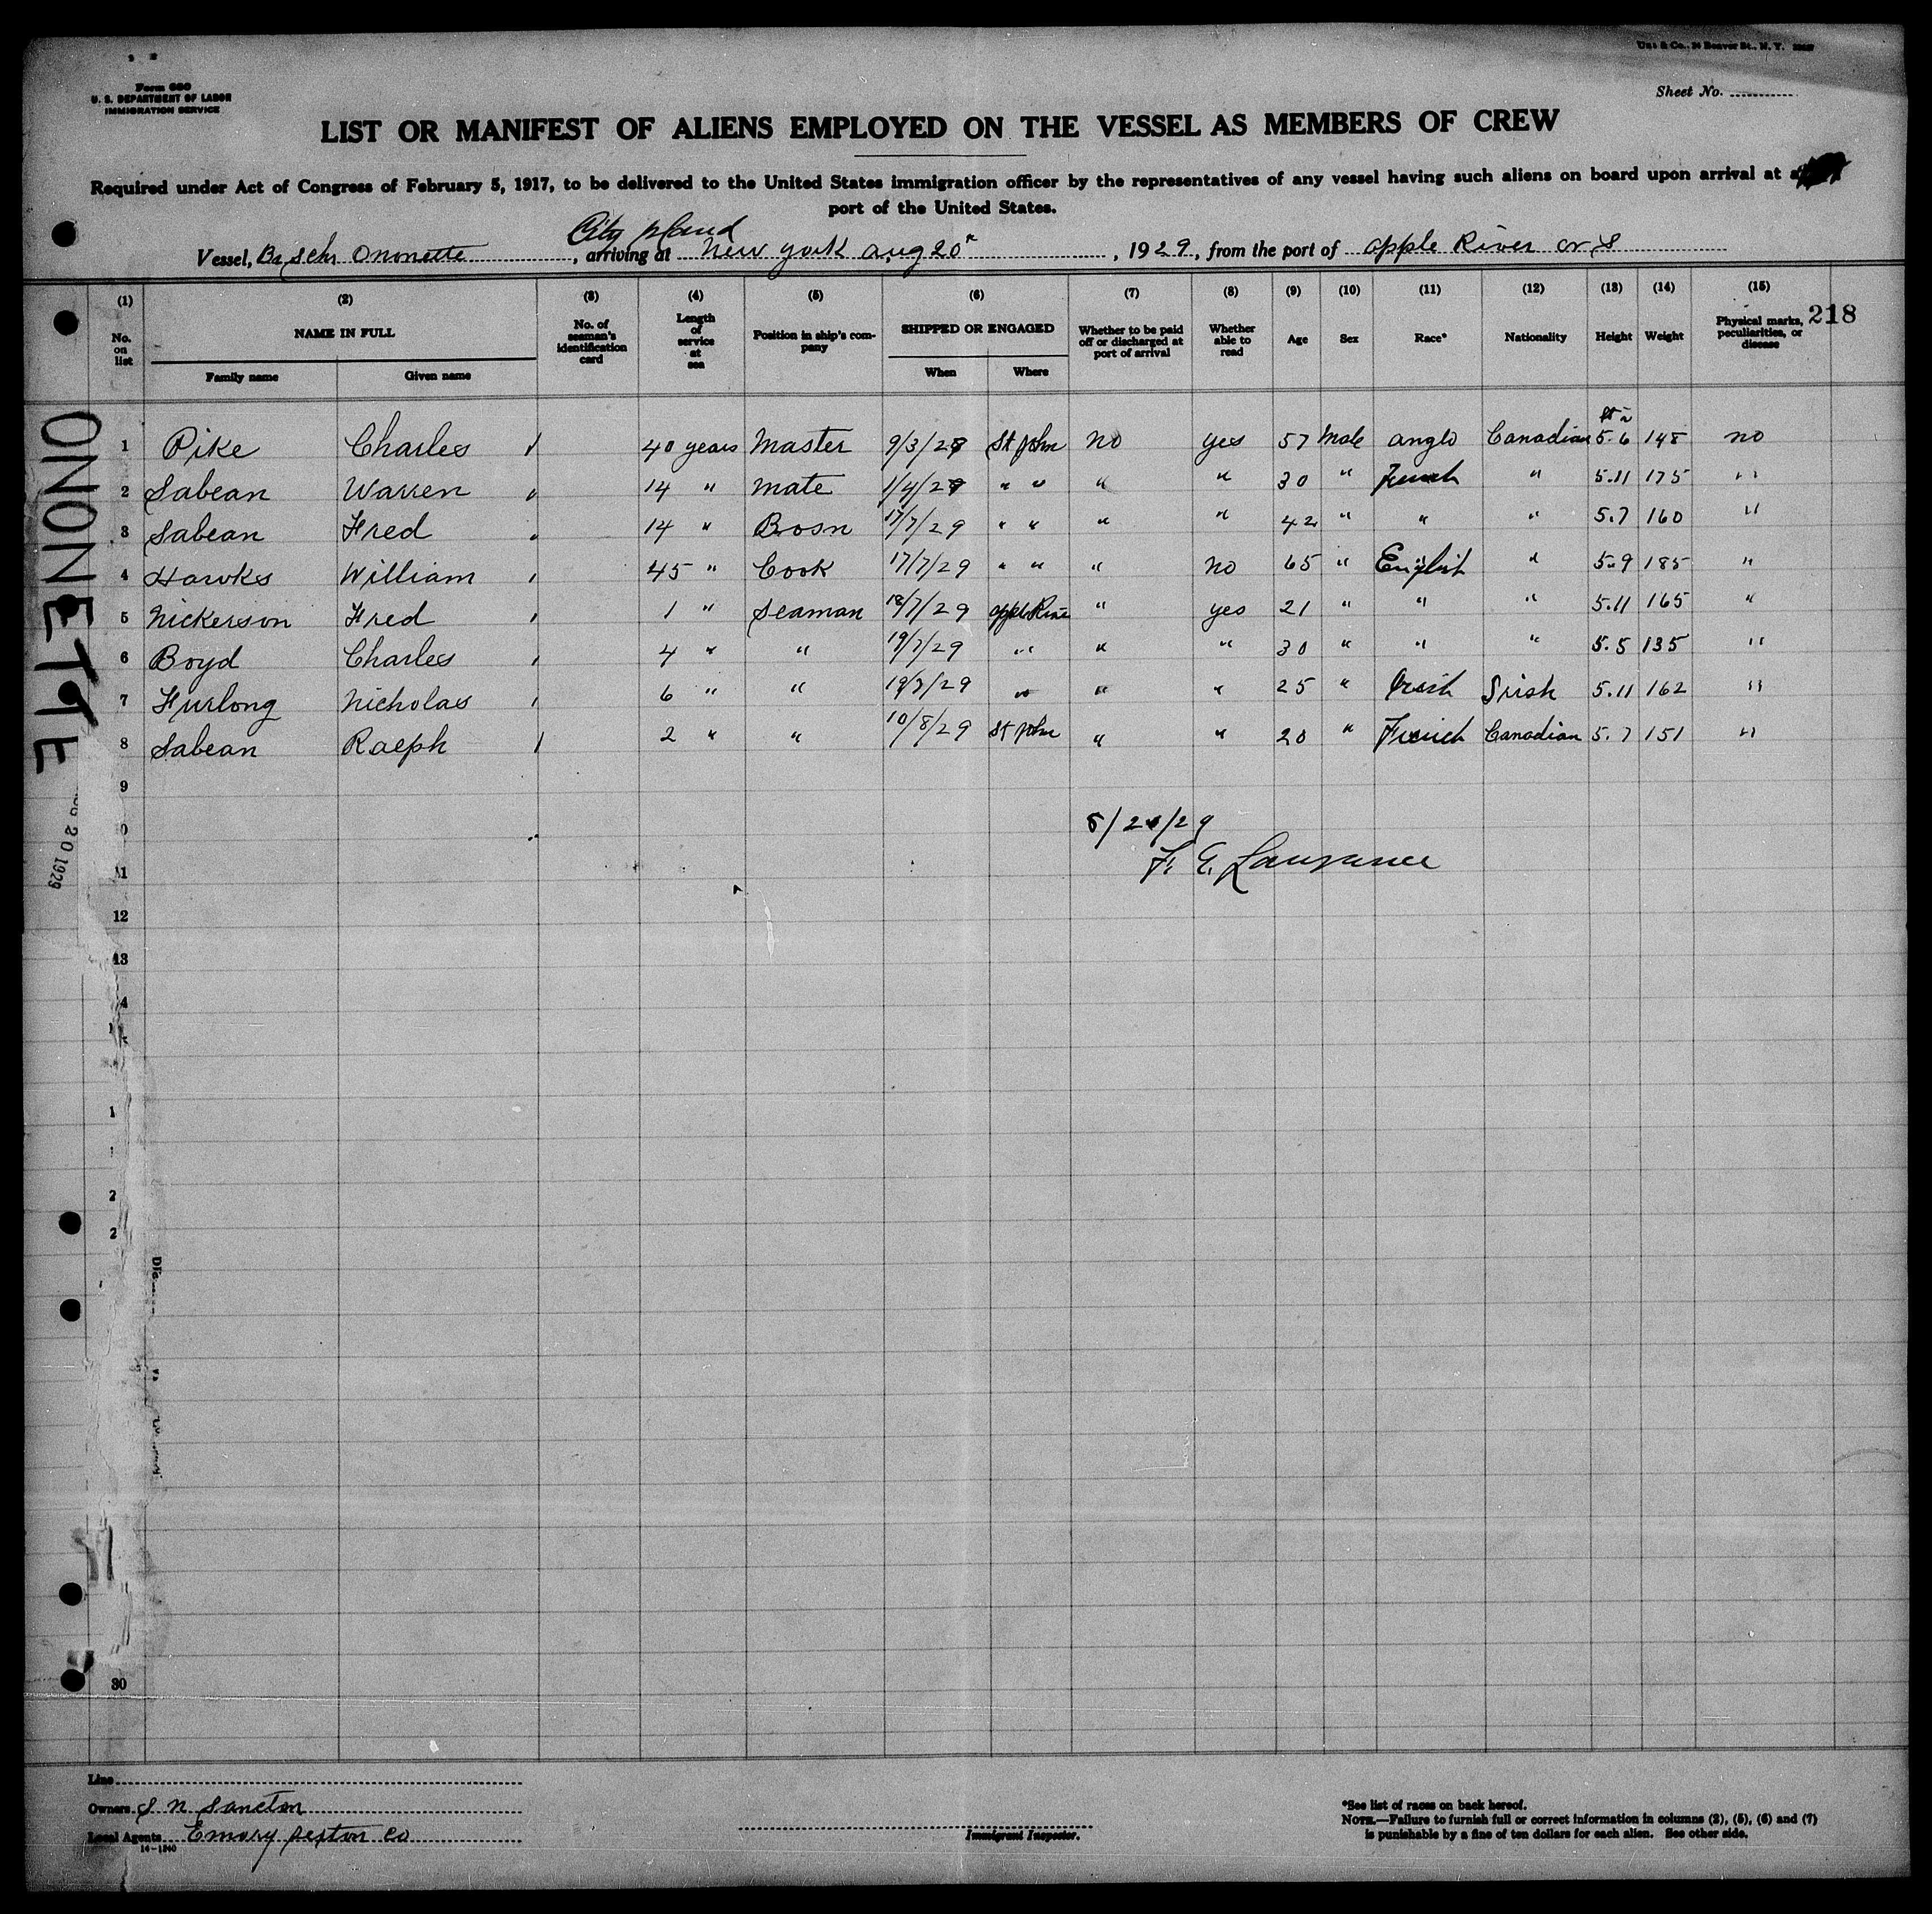 Form 680
U. S. DEPARTMENT OF LABOR
IMMIGRATION SERVICE
Sheet No.
LIST OR MANIFEST OF ALIENS EMPLOYED ON THE VESSEL AS MEMBERS OF CREW
Required under Act of Congress of February 5, 1917, to be delivered to the United States immigration officer by the representatives of any vessel having such aliens on board upon arrival at a
port of the United States.
City Island
Vessel, Br Schr Ononette, arriving at New York Aug 20, 1929, from the port of Apple River N S
(1) (2) (3) (4) (5) (6) (7) (8) (9) (10) (11) (12) (13) (14) (15)
218
No. on list NAME IN FULL No. of seaman's identification card Length of service at sea Position in ship's company SHIPPED OR ENGAGED Whether to be paid off or discharged at port of arrival Whether able to read Age Sex Race* Nationality Height Weight Physical marks, peculiarities, or disease
Family name Given name When Where
1 Pike Charles 40 years Master 9/3/29 St John no yes 57 Male Anglo Canadian 5.6 148 no
2 Sabean Warren 14 " Mate 1/4/29 " " " " 30 " French " 5.11 175 "
3 Sabean Fred 14 " Bosn 17/7/29 " " " " 42 " " " 5.7 160 "
4 Hawks William 45 " Cook 17/7/29 " " " no 65 " English " 5.9 185 "
5 Nickerson Fred 1 " Seaman 18/7/29 Apple River " yes 21 " " " 5.11 165 "
6 Boyd Charles 4 " " 19/7/29 " " " 30 " " " 5.5 135 "
7 Furlong Nicholas 6 " " 19/7/29 " " " 25 " Irish Irish 5.11 162 "
8 Sabean Ralph 2 " " 10/8/29 St John " " 20 " French Canadian 5.7 151 "
9
8/20/29
F. E. Lawrence
11
12
13
30
ONONETTE
20 1929
Line
Owners S N Sancton
Local Agents Emory Sexton Co
14-1240
Immigrant Inspector.
*See list of races on back hereof.
NOTE.—Failure to furnish full or correct information in columns (2), (5), (6) and (7)
is punishable by a fine of ten dollars for each alien. See other side.